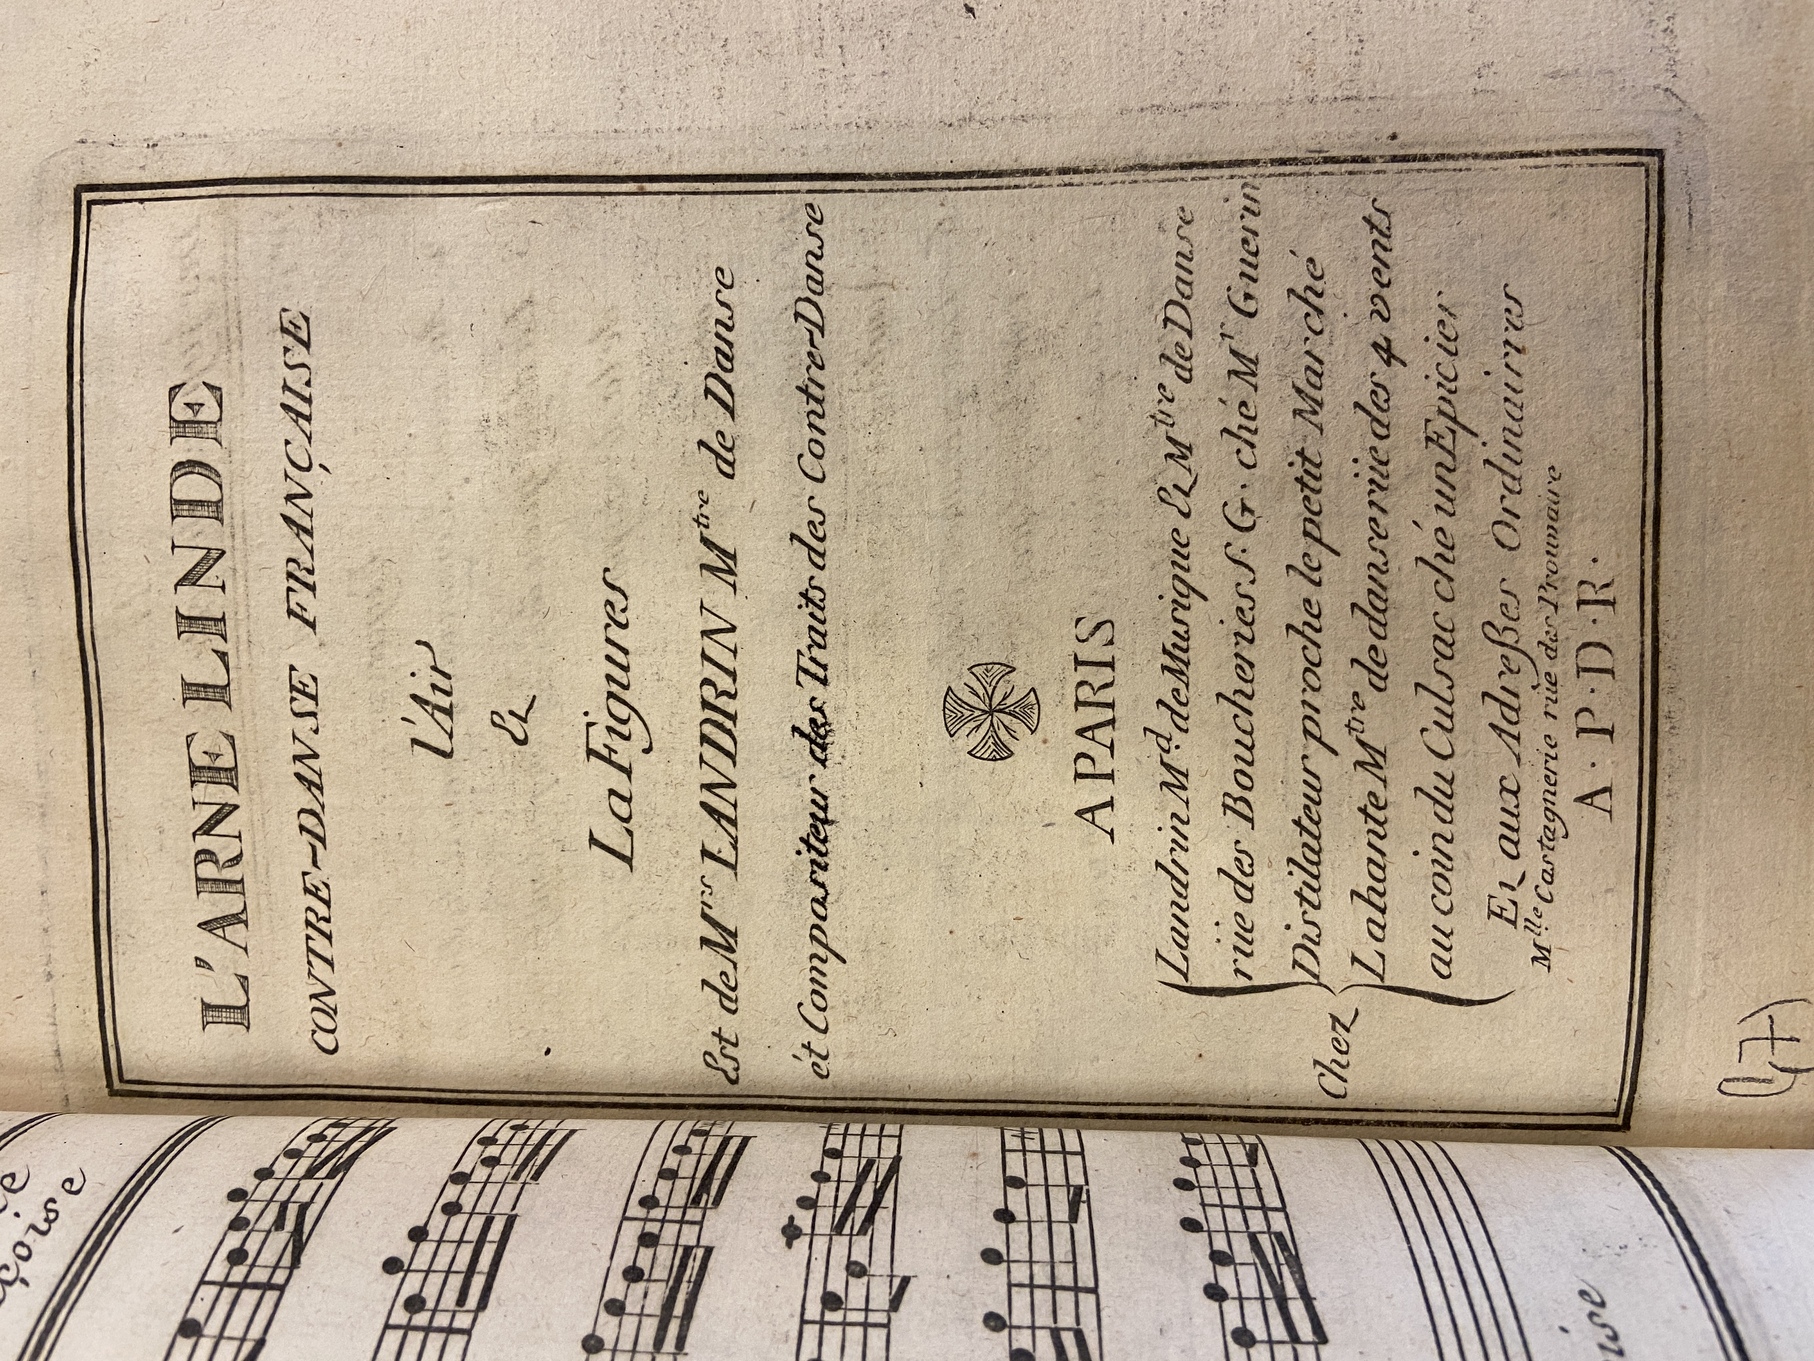 L'ARNE LINDE
CONTRE-DANSE FRANÇAISE
l'Air
&
La Figures
Est de Mrs LANDRIN Mtre de Danse
ét Compositeur des Traits des Contre-Danse
A PARIS
Chez
Landrin Md. de Musique & Mtre de Danse
rüe des Boucheries S. G. ché Mr Guerin
Distilateur proche le petit Marché
Lahante Mtre de danse rüe des 4 vents
au coin du Culsac ché un Epicier
Et aux Adreßes Ordinaires
Mlle Castagnerie rüe des Prouvaire
A. P. D. R.
(47)
çoise